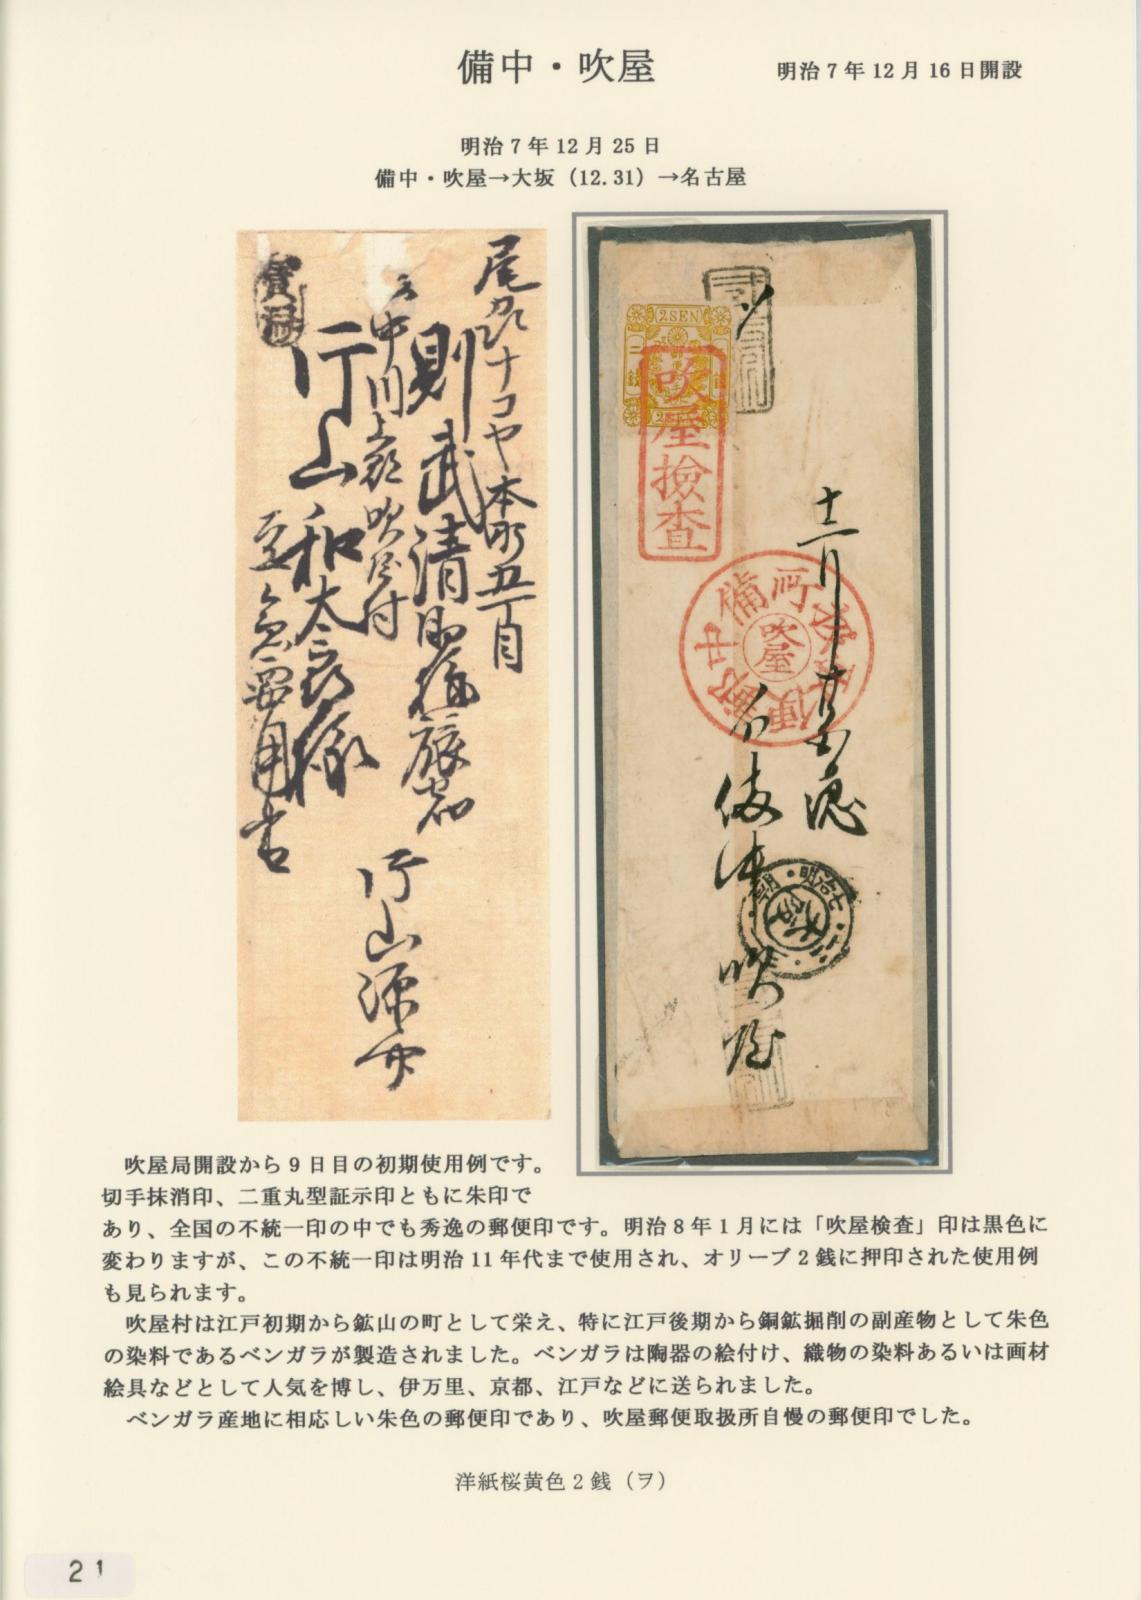 備中・吹屋
明治7年12月16日開設
明治7年12月25日
備中・吹屋→大坂（12.31）→名古屋
尾州ナコヤ本町五丁目
則武清
中川上郡吹屋村
片山和太郎様
至急要用書
片山源
2SEN
二
銭
吹屋檢査
備中
郵便
吹屋
十二月
吹屋
明治七
吹屋局開設から9日目の初期使用例です。
切手抹消印、二重丸型証示印ともに朱印で
あり、全国の不統一印の中でも秀逸の郵便印です。明治8年1月には「吹屋検査」印は黒色に
変わりますが、この不統一印は明治11年代まで使用され、オリーブ2銭に押印された使用例
も見られます。
吹屋村は江戸初期から鉱山の町として栄え、特に江戸後期から銅鉱掘削の副産物として朱色
の染料であるベンガラが製造されました。ベンガラは陶器の絵付け、織物の染料あるいは画材
絵具などとして人気を博し、伊万里、京都、江戸などに送られました。
ベンガラ産地に相応しい朱色の郵便印であり、吹屋郵便取扱所自慢の郵便印でした。
洋紙桜黄色2銭（ヲ）
21